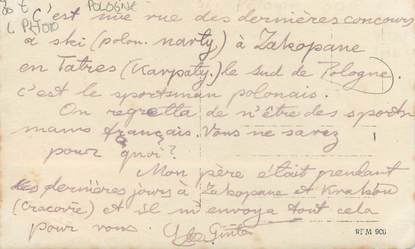 POLOGNE
C'est une rue des dernières concours
à ski (polon. narty) à Zakopane
en Tatres (Karpaty,) le sud de Pologne).
c'est le sportsman polonais.
On regretta de n'être des sports
mans français. Vous ne savez
pour quoi?
Mon père était pendant
les dernières jours à Zakopane et Kraków
(Cracovie) et il m'envoya tout cela
pour vous.